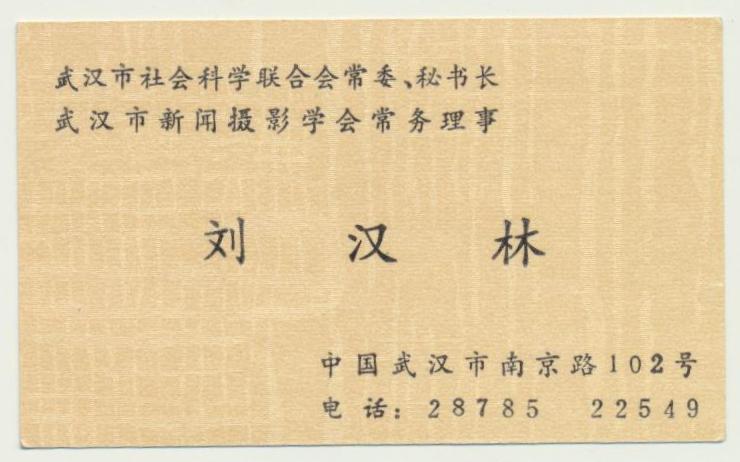 武汉市社会科学联合会常委、秘书长
武汉市新闻摄影学会常务理事
刘汉林
中国武汉市南京路102号
电话：28785 22549